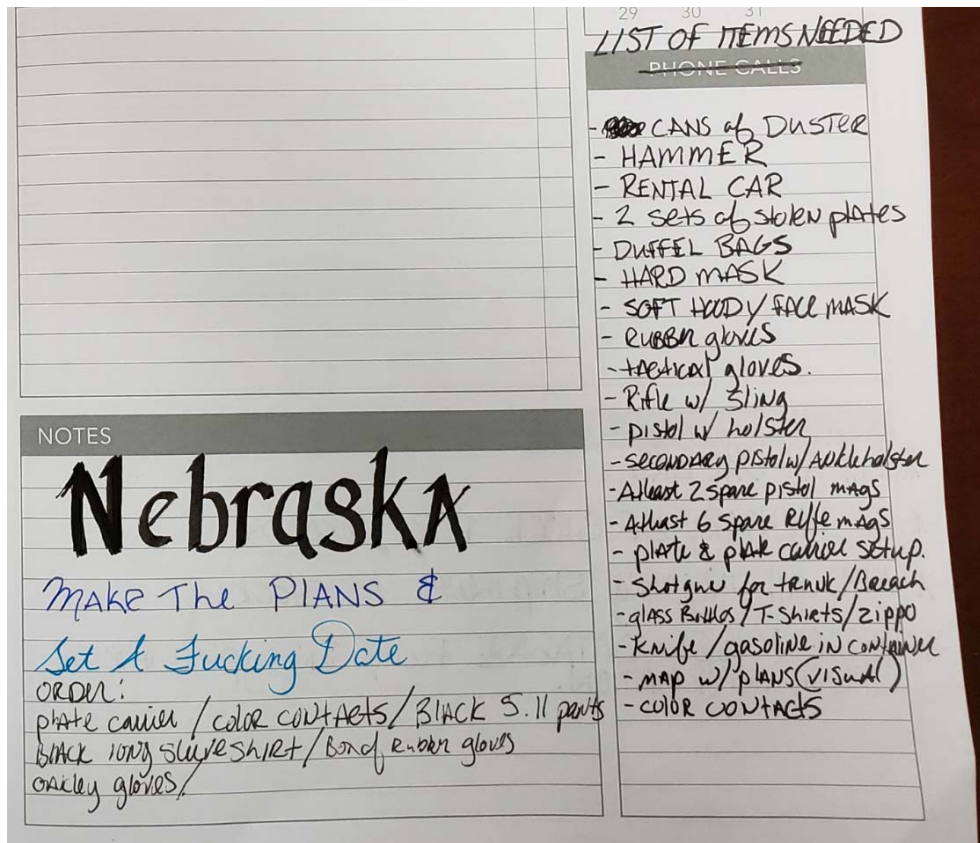 29 30 31
LIST OF ITEMS NEEDED
PHONE CALLS
- CANS of DUSTER
- HAMMER
- RENTAL CAR
- 2 sets of stolen plates
- DUFFEL BAGS
- HARD MASK
- SOFT HOODY/FACE MASK
- RUBBER gloves
- tActical gloves.
- Rifle w/ Sling
- pistol w/ holster
- SECONDARY pistol w/ Ankle holster
- Atleast 2 spare pistol mags
- Atleast 6 spare Rifle mags
- plate & plate carrier setup.
- Shotgun for trunk/Breach
- glass Bottles/T-Shirts/zippo
- Knife/gasoline in container
- map w/ plans (visual)
- COLOR CONTACTS
NOTES
Nebraska
MAKE The PLANS &
Set A Fucking Date
ORDER:
plate carrier / color contacts / BLACK 5.11 pants
BLACK long sleeve shirt / Box of Rubber gloves
OAKLEY gloves /